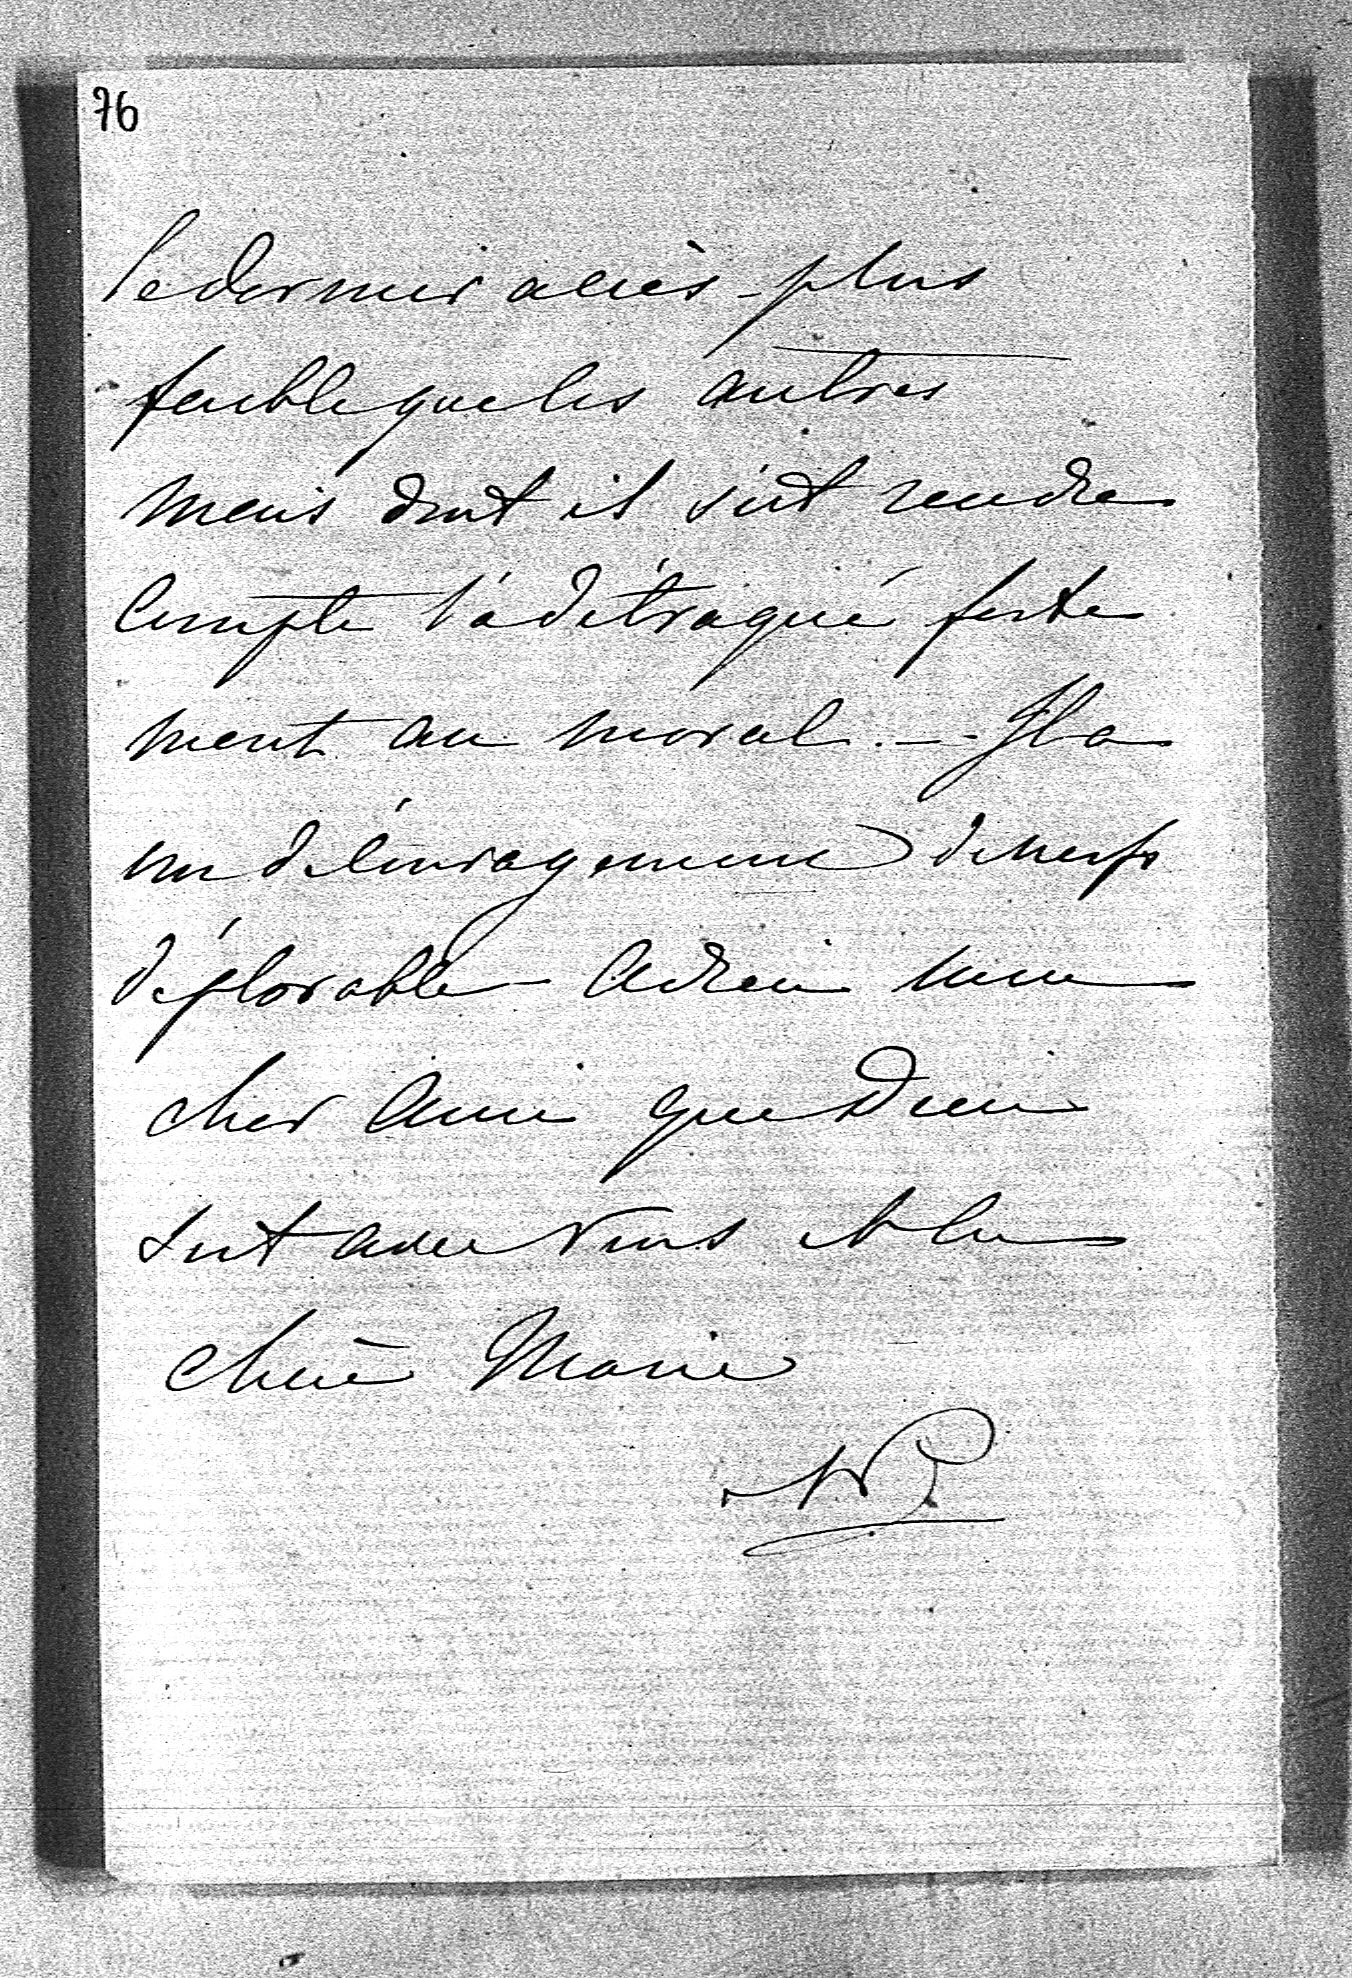 76
le dernier accès plus
faible que les autres
mais dont il s'est rendu
compte l'a détraqué forte
ment au moral. — Il a
un découragement de nerfs
déplorable — Adieu mon
cher Ami que Dieu
soit avec Vous et la
chère Marie